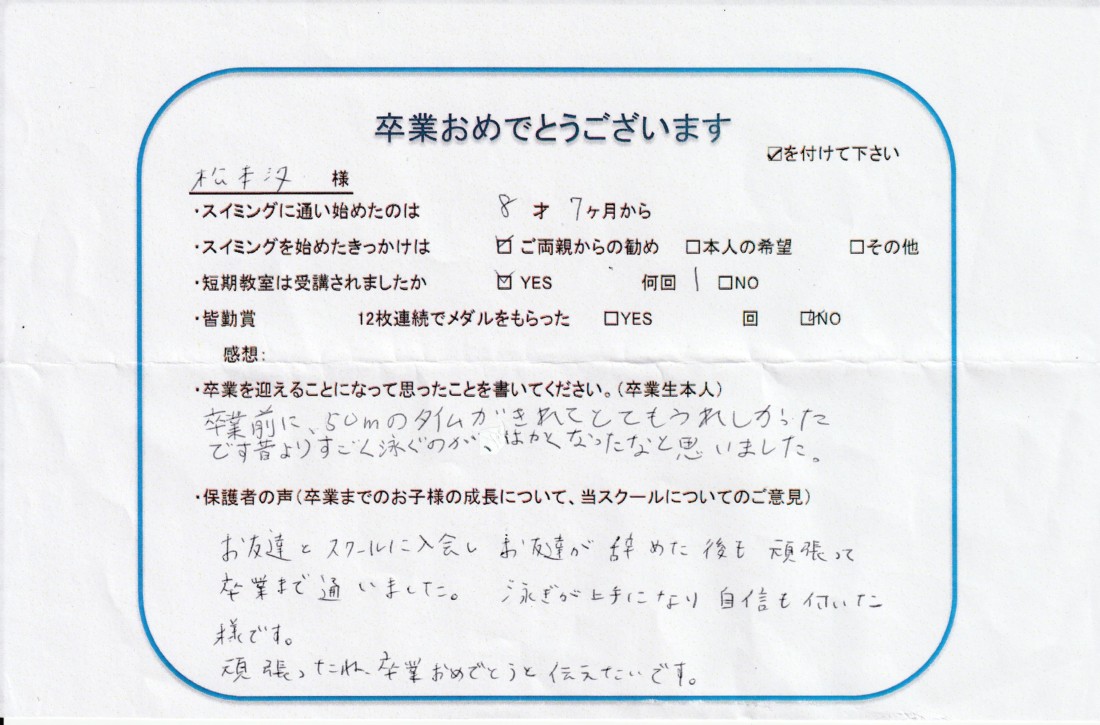 卒業おめでとうございます
☑を付けて下さい
松本汐 様
・スイミングに通い始めたのは 8 才 7ヶ月から
・スイミングを始めたきっかけは ☑ご両親からの勧め □本人の希望 □その他
・短期教室は受講されましたか ☑YES 何回 1 □NO
・皆勤賞 12枚連続でメダルをもらった □YES 回 ☑NO
感想:
・卒業を迎えることになって思ったことを書いてください。(卒業生本人)
卒業前に、50mのタイムがきれてとてもうれしかった
です昔よりすごく泳ぐのが、はやくなったなと思いました。
・保護者の声(卒業までのお子様の成長について、当スクールについてのご意見)
お友達とスクールに入会しお友達が辞めた後も頑張って
卒業まで通いました。 泳ぎが上手になり自信も付いた
様です。
頑張ったね、卒業おめでとうと伝えたいです。